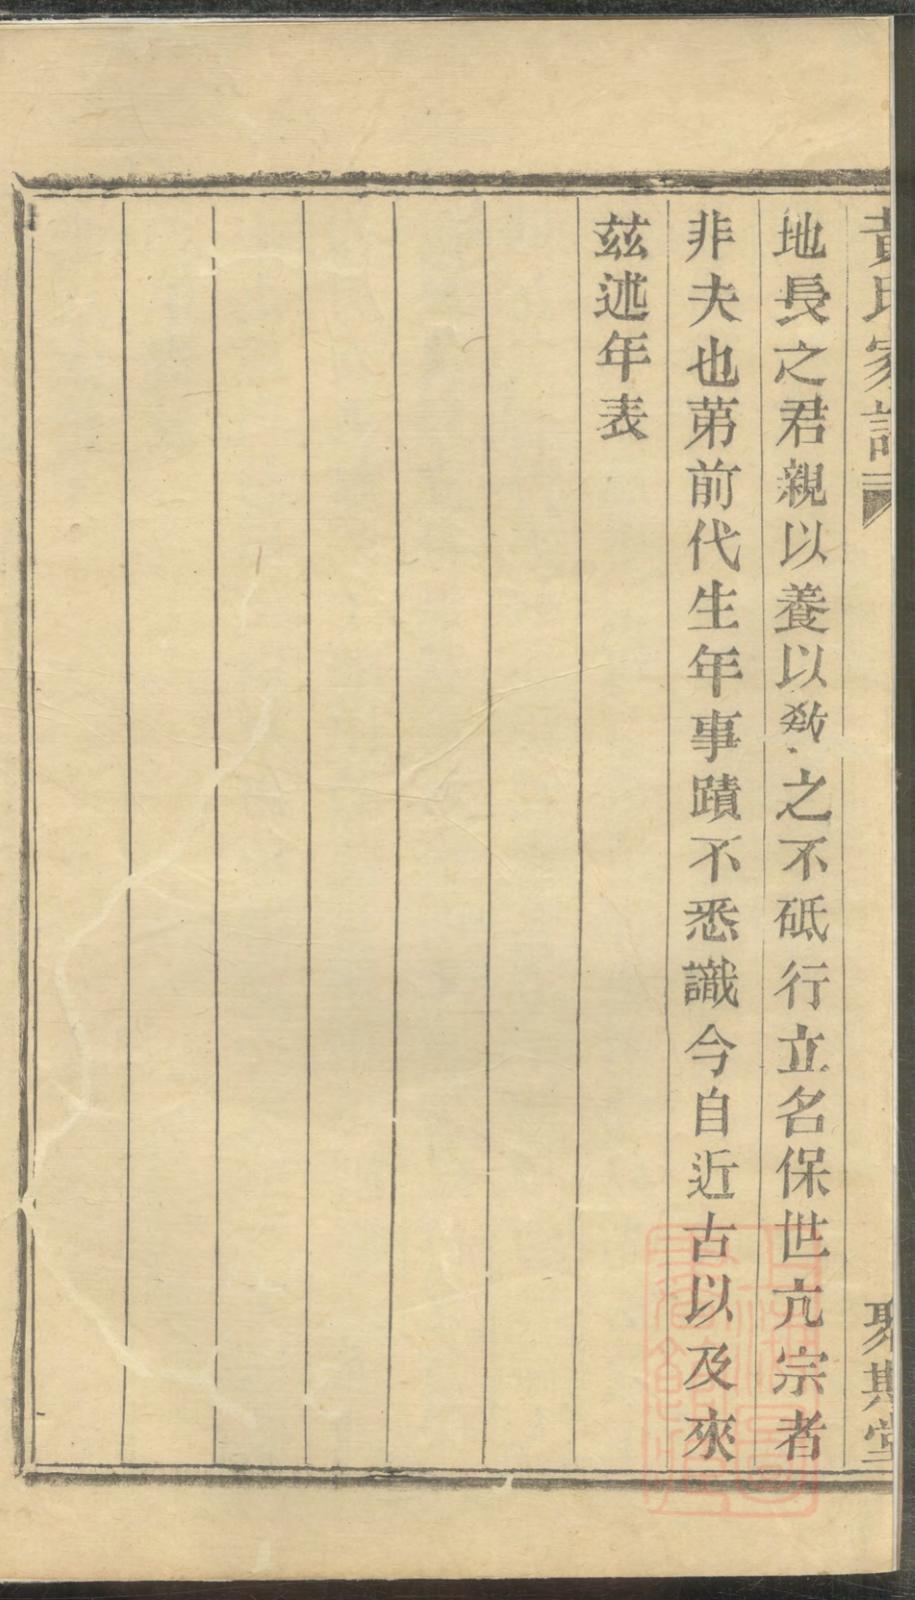 黃氏家譜
聚斯堂
地長之君親以養以教之不砥行立名保世亢宗者
非夫也苐前代生年事蹟不悉識今自近古以及來
茲述年表